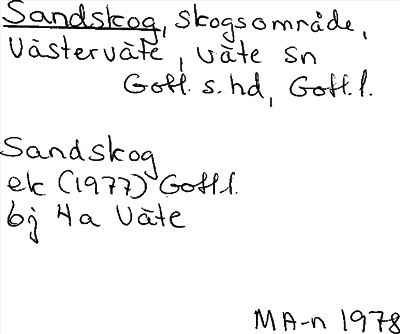 Sandskog, skogsområde,
Västerväte, Väte sn
Gotl. s. hd, Gotl. l.
Sandskog
ek (1977) Gotl l.
bj 4a Väte
MA-n 1978